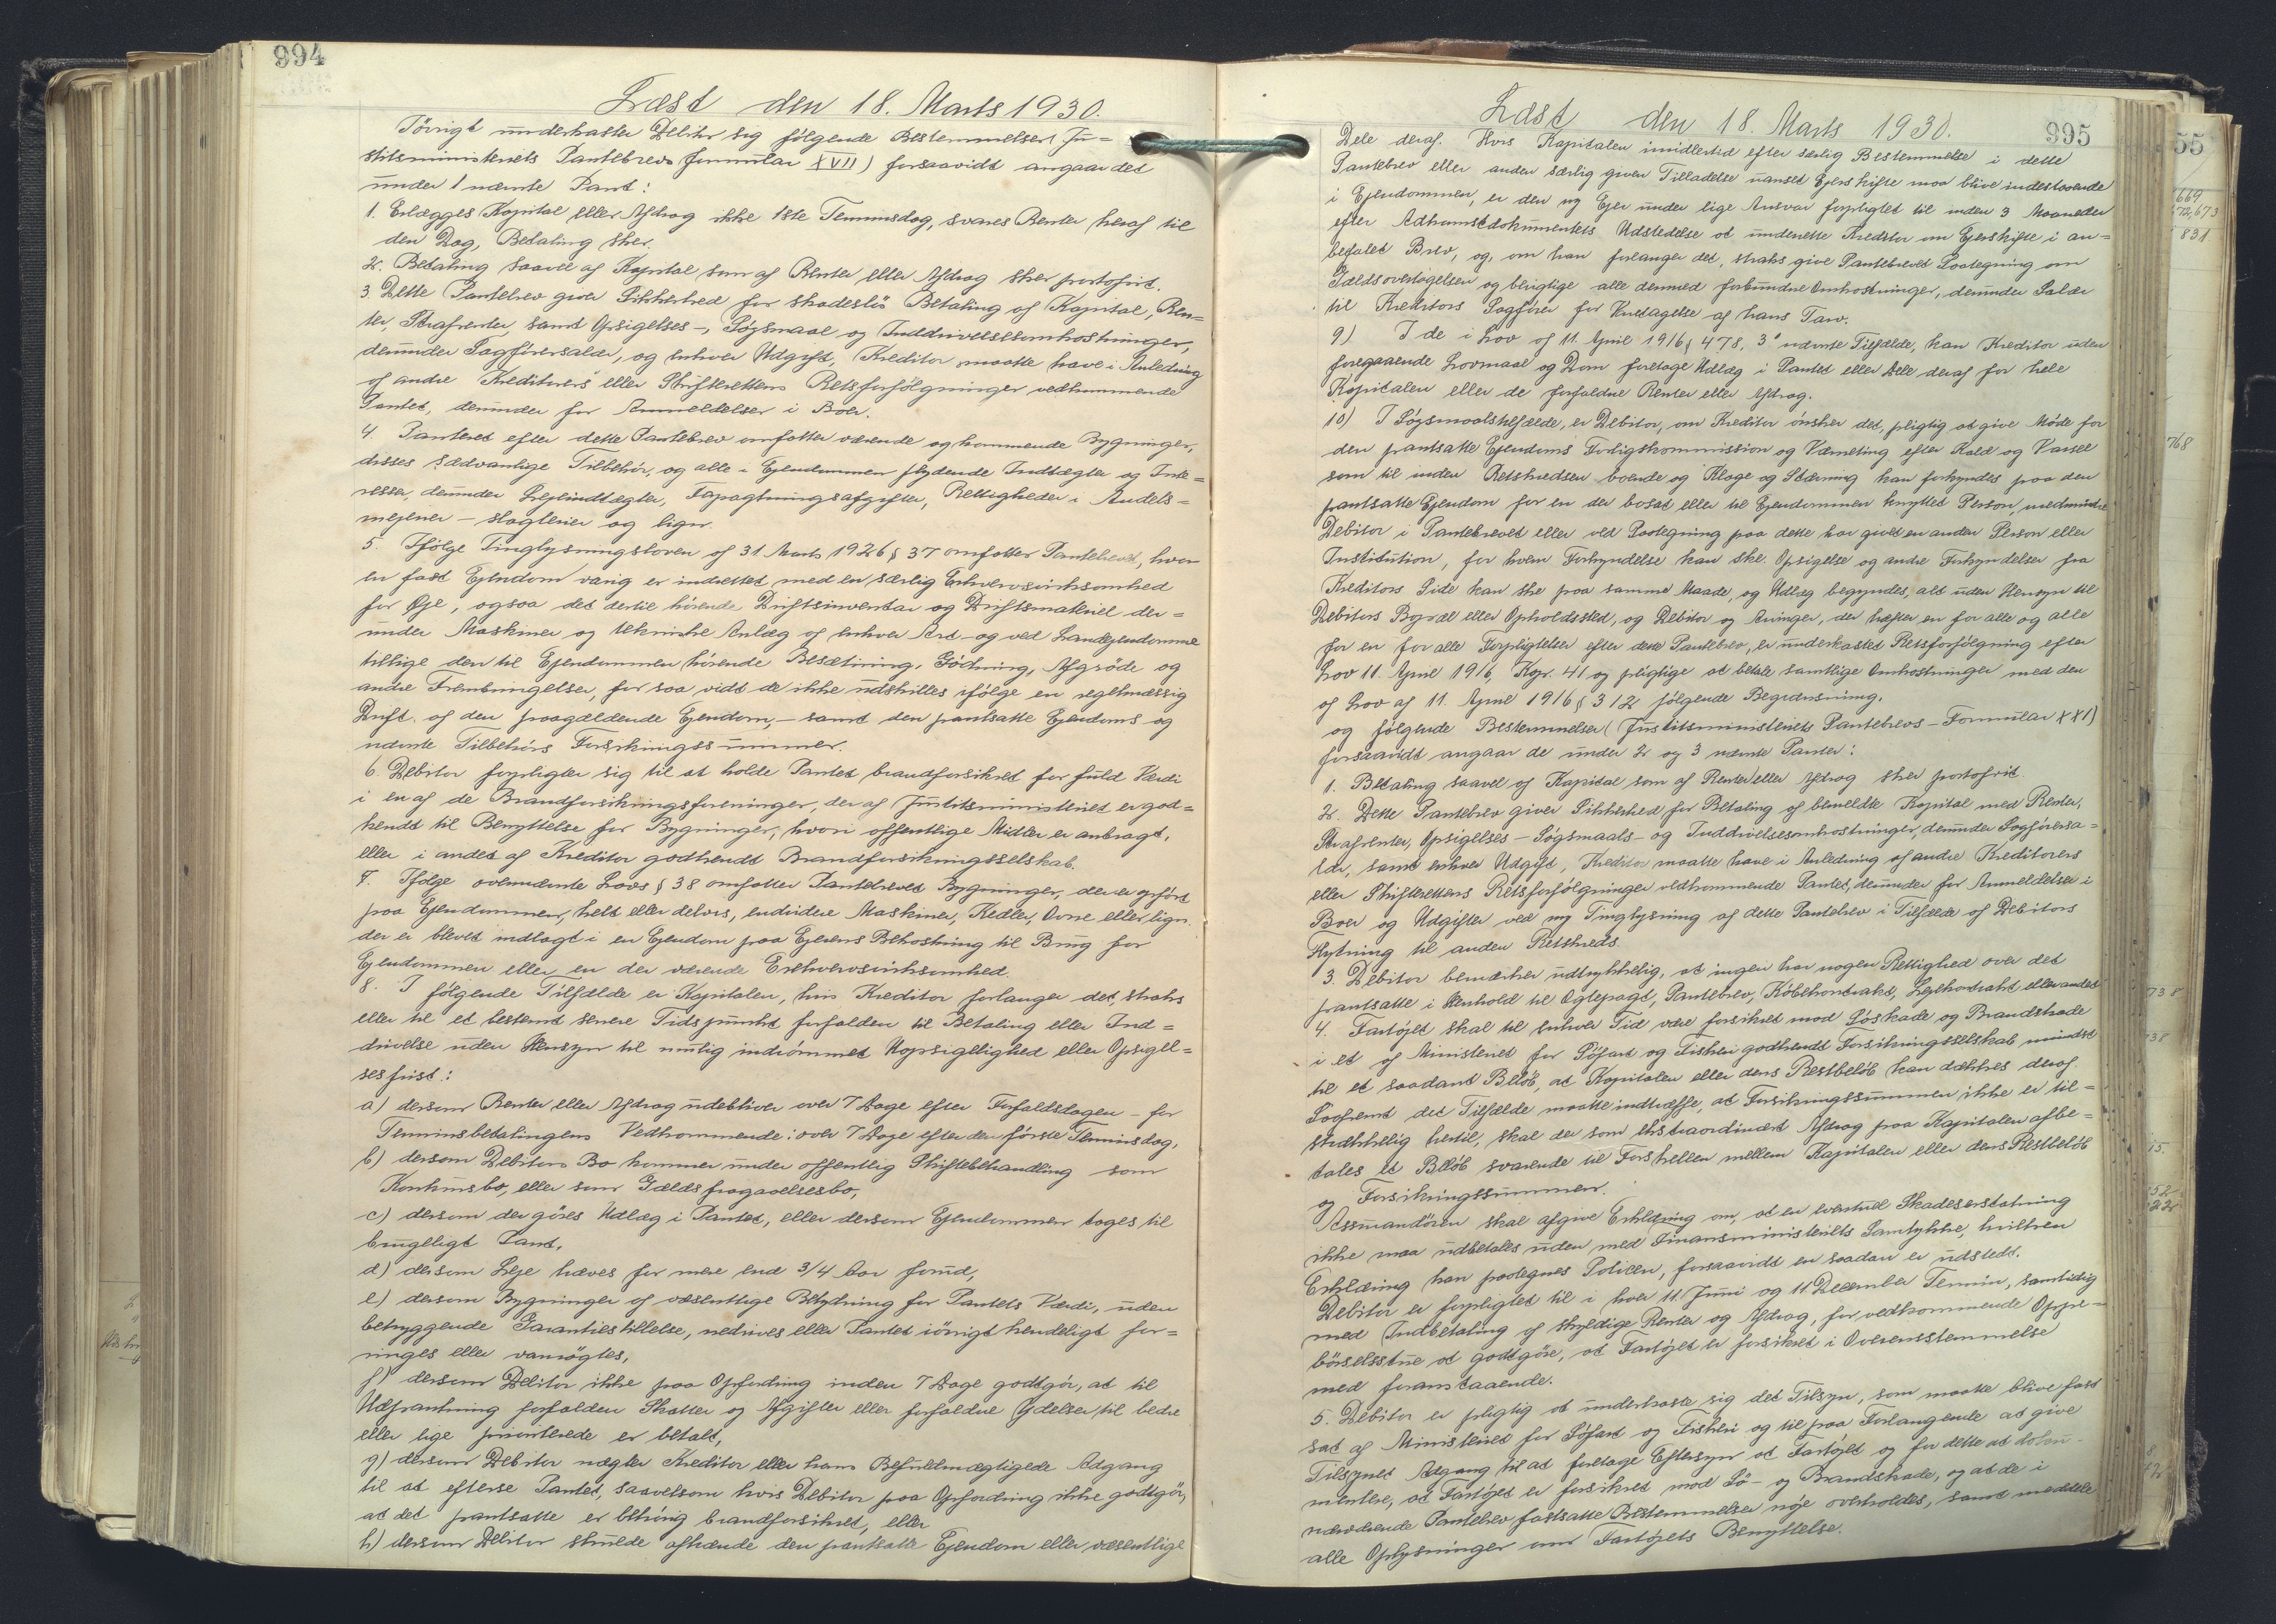 994
Læst den 18. Marts 1930.
Iövrigt underkaster Debitor sig følgende Bestemmelser (Ju=
stitsministeriets Pantebrevs formular XVII) forsaavidt angaar det
under 1 nævnte Pant:
1. Erlægges Kapital eller Afdrag ikke 1ste Terminsdag, svares Renter heraf til
den Dag, Betaling sker.
2. Betaling saavel af Kapital som af Renter eller Afdrag sker portofrit.
3. Dette Pantebrev giver Sikkerhed for skadeslös Betaling af Kapital, Ren=
ter, Strafrenter, samt Opsigelses-, Søgsmaal og Inddrivelsesomkostninger,
derunder Sagførersalær, og enhver Udgift, Kreditor maatte have i Anledning
af andre Kreditorers eller Skifterettens Retsforfølgninger vedkommende
Pantet, derunder for Anmeldelser i Boer.
4. Panteret efter dette Pantebrev omfatter værende og kommende Bygninger,
disses sædvanlige Tilbehör, og alle i Ejendommen flydende Indtægter og Inte=
resser, derunder Lejeindtægter, Forpagtningsafgifter, Rettigheder i Andels=
mejerier - slagterier og lign.
5. Ifölge Tinglysningsloven af 31 Marts 1926 § 37 omfatter Pantebrevet, hvor
en fast Ejendom varig er indrettet med en særlig Erhvervsvirksomhed
for Øje, ogsaa det dertil hörende Driftsinventar og Driftsmateriel der=
under Maskiner og tekniske Anlæg af enhver Art - og ved Landejendomme
tillige den til Ejendommen hörende Besætning, Gödning, Afgröde og
andre Frembringelser, for saa vidt de ikke udskilles ifölge en regelmæssig
Drift af den paagældende Ejendom, - samt den pantsatte Ejendoms og
nævnte Tilbehörs Forsikringssummer.
6. Debitor forpligter sig til at holde Pantet brandforsikret for fuld Værdi
i en af de Brandforsikringsforeninger, der af Justitsministeriet er god=
kendt til Benyttelse for Bygninger, hvori offentlige Midler er anbragt,
eller i andet af Kreditor godkendt Brandforsikringsselskab.
7. Ifølge ovennævnte Lovs § 38 omfatter Pantebrevet Bygninger, der er opført
paa Ejendommen, helt eller delvis, endvidere Maskiner, Kedler, Ovne eller lign.
der er blevet indlagt i en Ejendom paa Ejerens Bekostning til Brug for
Ejendommen eller en der værende Erhvervsvirksomhed.
8. I følgende Tilfælde er Kapitalen, hvis Kreditor forlanger det, straks
eller til et bestemt senere Tidspunkt forfalden til Betaling eller Ind=
drivelse uden Hensyn til mulig indrömmet Uopsigelighed eller Opsigel=
sesfrist:
a) dersom Renter eller Afdrag udebliver over 7 Dage efter Forfaldsdagen - for
Terminsbetalingens Vedkommende: over 7 Dage efter den første Terminsdag,
b) dersom Debitors Bo kommer under offentlig Skiftebehandling som
Konkursbo, eller som Gældsfragaaelsesbo,
c) dersom der göres Udlæg i Pantet, eller dersom Ejendommen tages til
brugeligt Pant,
d) dersom Leje hæves for mere end 3/4 Aar forud,
e) dersom Bygninger af væsentlige Betydning for Pantets Værdi, uden
betryggende Garantiestillelse, nedrives eller Pantet iövrigt kendeligt for=
ringes eller vanrögtes,
f) dersom Debitor ikke paa Opfordring inden 7 Dage godtgör, at til
Udpantning forfalden Skatter og Afgifter eller forfaldne Ydelser til bedre
eller lige prioriterede er betalt,
g) dersom Debitor nægter Kreditor eller hans Befuldmægtigede Adgang
til at efterse Pantet, saavelsom hvis Debitor paa Opfordring ikke godtgör,
at det pantsatte er behörig brandforsikret, eller
h) dersom Debitor skulde afhænde den pantsatte Ejendom eller væsentlige
995
Læst den 18. Marts 1930.
Dele deraf. Hvis Kapitalen imidlertid efter særlig Bestemmelse i dette
Pantebrev eller anden særlig given Tilladelse uanset Ejerskifte maa blive indestaaende
i Ejendommen, er den ny Ejer under lige Ansvar forpligtet til inden 3 Maaneder
efter Adkomstdokumentets Udstedelse at underrette Kreditor om Ejerskifte i an=
befalet Brev, og, om han forlanger det, straks give Pantebrevet Paategning om
Gældsovertagelsen og berigtige alle dermed forbundne Omkostninger, derunder Salær
til Kreditors Sagfører for Varetagelse af hans Tarv.
9) I de i Lov af 11. April 1916 § 478, 3° nævnte Tilfælde, kan Kreditor uden
foregaaende Lovmaal og Dom foretage Udlæg i Pantet eller Dele deraf for hele
Kapitalen eller de forfaldne Renter eller Afdrag.
10) I Søgsmaalstilfælde, er Debitor, om Kreditor ønsker det, pligtig at give Møde for
den pantsatte Ejendoms Forligskommission og Værneting efter Kald og Varsel
som til inden Retskredsen boende og Klage og Stævning kan forkyndes paa den
pantsatte Ejendom for en der bosat eller til Ejendommen knyttet Person, medmindre
Debitor i Pantebrevet eller ved Paategning paa dette har givet en anden Person eller
Institution, for hvem Forkyndelse kan ske. Opsigelse og andre Forkyndelser fra
Kreditors Side kan ske paa samme Maade, og Udlæg begyndes, alt uden Hensyn til
Debitors Bopæl eller Opholdssted, og Debitor og Arvinger, der hæfter en for alle og alle
for en for alle Forpligtelser efter dette Pantebrev, er underkastet Retsforfølgning efter
Lov 11. April 1916, Kap. 41 og pligtige at betale samtlige Omkostninger med den
af Lov af 11. April 1916 § 312 følgende Begrænsning.
og følgende Bestemmelser (Justitsministeriets Pantebrevs - Formular XXI)
forsaavidt angaar de under 2 og 3 nævnte Panter:
1. Betaling saavel af Kapital som af Renter eller Afdrag sker portofrit.
2. Dette Pantebrev giver Sikkerhed for Betaling af bemeldte Kapital med Renter,
Strafrenter, Opsigelses - Søgsmaals - og Inddrivelsesomkostninger, derunder Sagførersa=
lær, samt enhver Udgift, Kreditor maatte have i Anledning af andre Kreditorers
eller Skifterettens Retsforfølgninger vedkommende Pantet, derunder for Anmeldelse i
Boer og Udgifter ved ny Tinglysning af dette Pantebrev i Tilfælde af Debitors
Flytning til anden Retskreds.
3. Debitor bemærker udtrykkelig, at ingen har nogen Rettighed over det
pantsatte i Henhold til Ægtepagt, Pantebrev, Købekontrakt, Lejekontrakt eller andet
4. Fartøjet skal til enhver Tid være forsikret mod Søskade og Brandskade
i et af Ministeriet for Søfart og Fiskeri godkendt Forsikringsselskab mindst
til et saadant Beløb, at Kapitalen eller dens Restbeløb kan dækkes deraf.
Saafremt det Tilfælde maatte indtræffe, at Forsikringssummen ikke er til=
strækkelig hertil, skal der som ekstraordinært Afdrag paa Kapitalen afbe=
tales et Beløb svarende til Forskellen mellem Kapitalen eller dens Restbeløb
og Forsikringssummen.
Assurandören skal afgive Erklæring om, at en eventuel Skadeserstatning
ikke maa udbetales uden med Finansministeriets Samtykke, hvilken
Erklæring kan paategnes Policen, forsaavidt en saadan er udstedt.
Debitor er forpligtet til i hver 11. Juni og 11 December Termin, samtidig
med Indbetaling af skyldige Renter og Afdrag, for vedkommende Oppe=
börselsstue at godtgöre, at Fartöjet er forsikret i Overensstemmelse
med foranstaaende.
5. Debitor er pligtig at underkaste sig det Tilsyn, som maatte blive fast
sat af Ministeriet for Søfart og Fiskeri og til paa Forlangende at give
Tilsynet Adgang til at foretage Eftersyn at Fartöjet og for dette at doku=
mentere, at Fartöjet er forsikret mod Sö- og Brandskade, og at de i
nærværende Pantebrev fastsatte Bestemmelser nøje overholdes, samt meddele
alle Oplysninger om Fartöjets Benyttelse.
55
669
831
768
738
38
15.